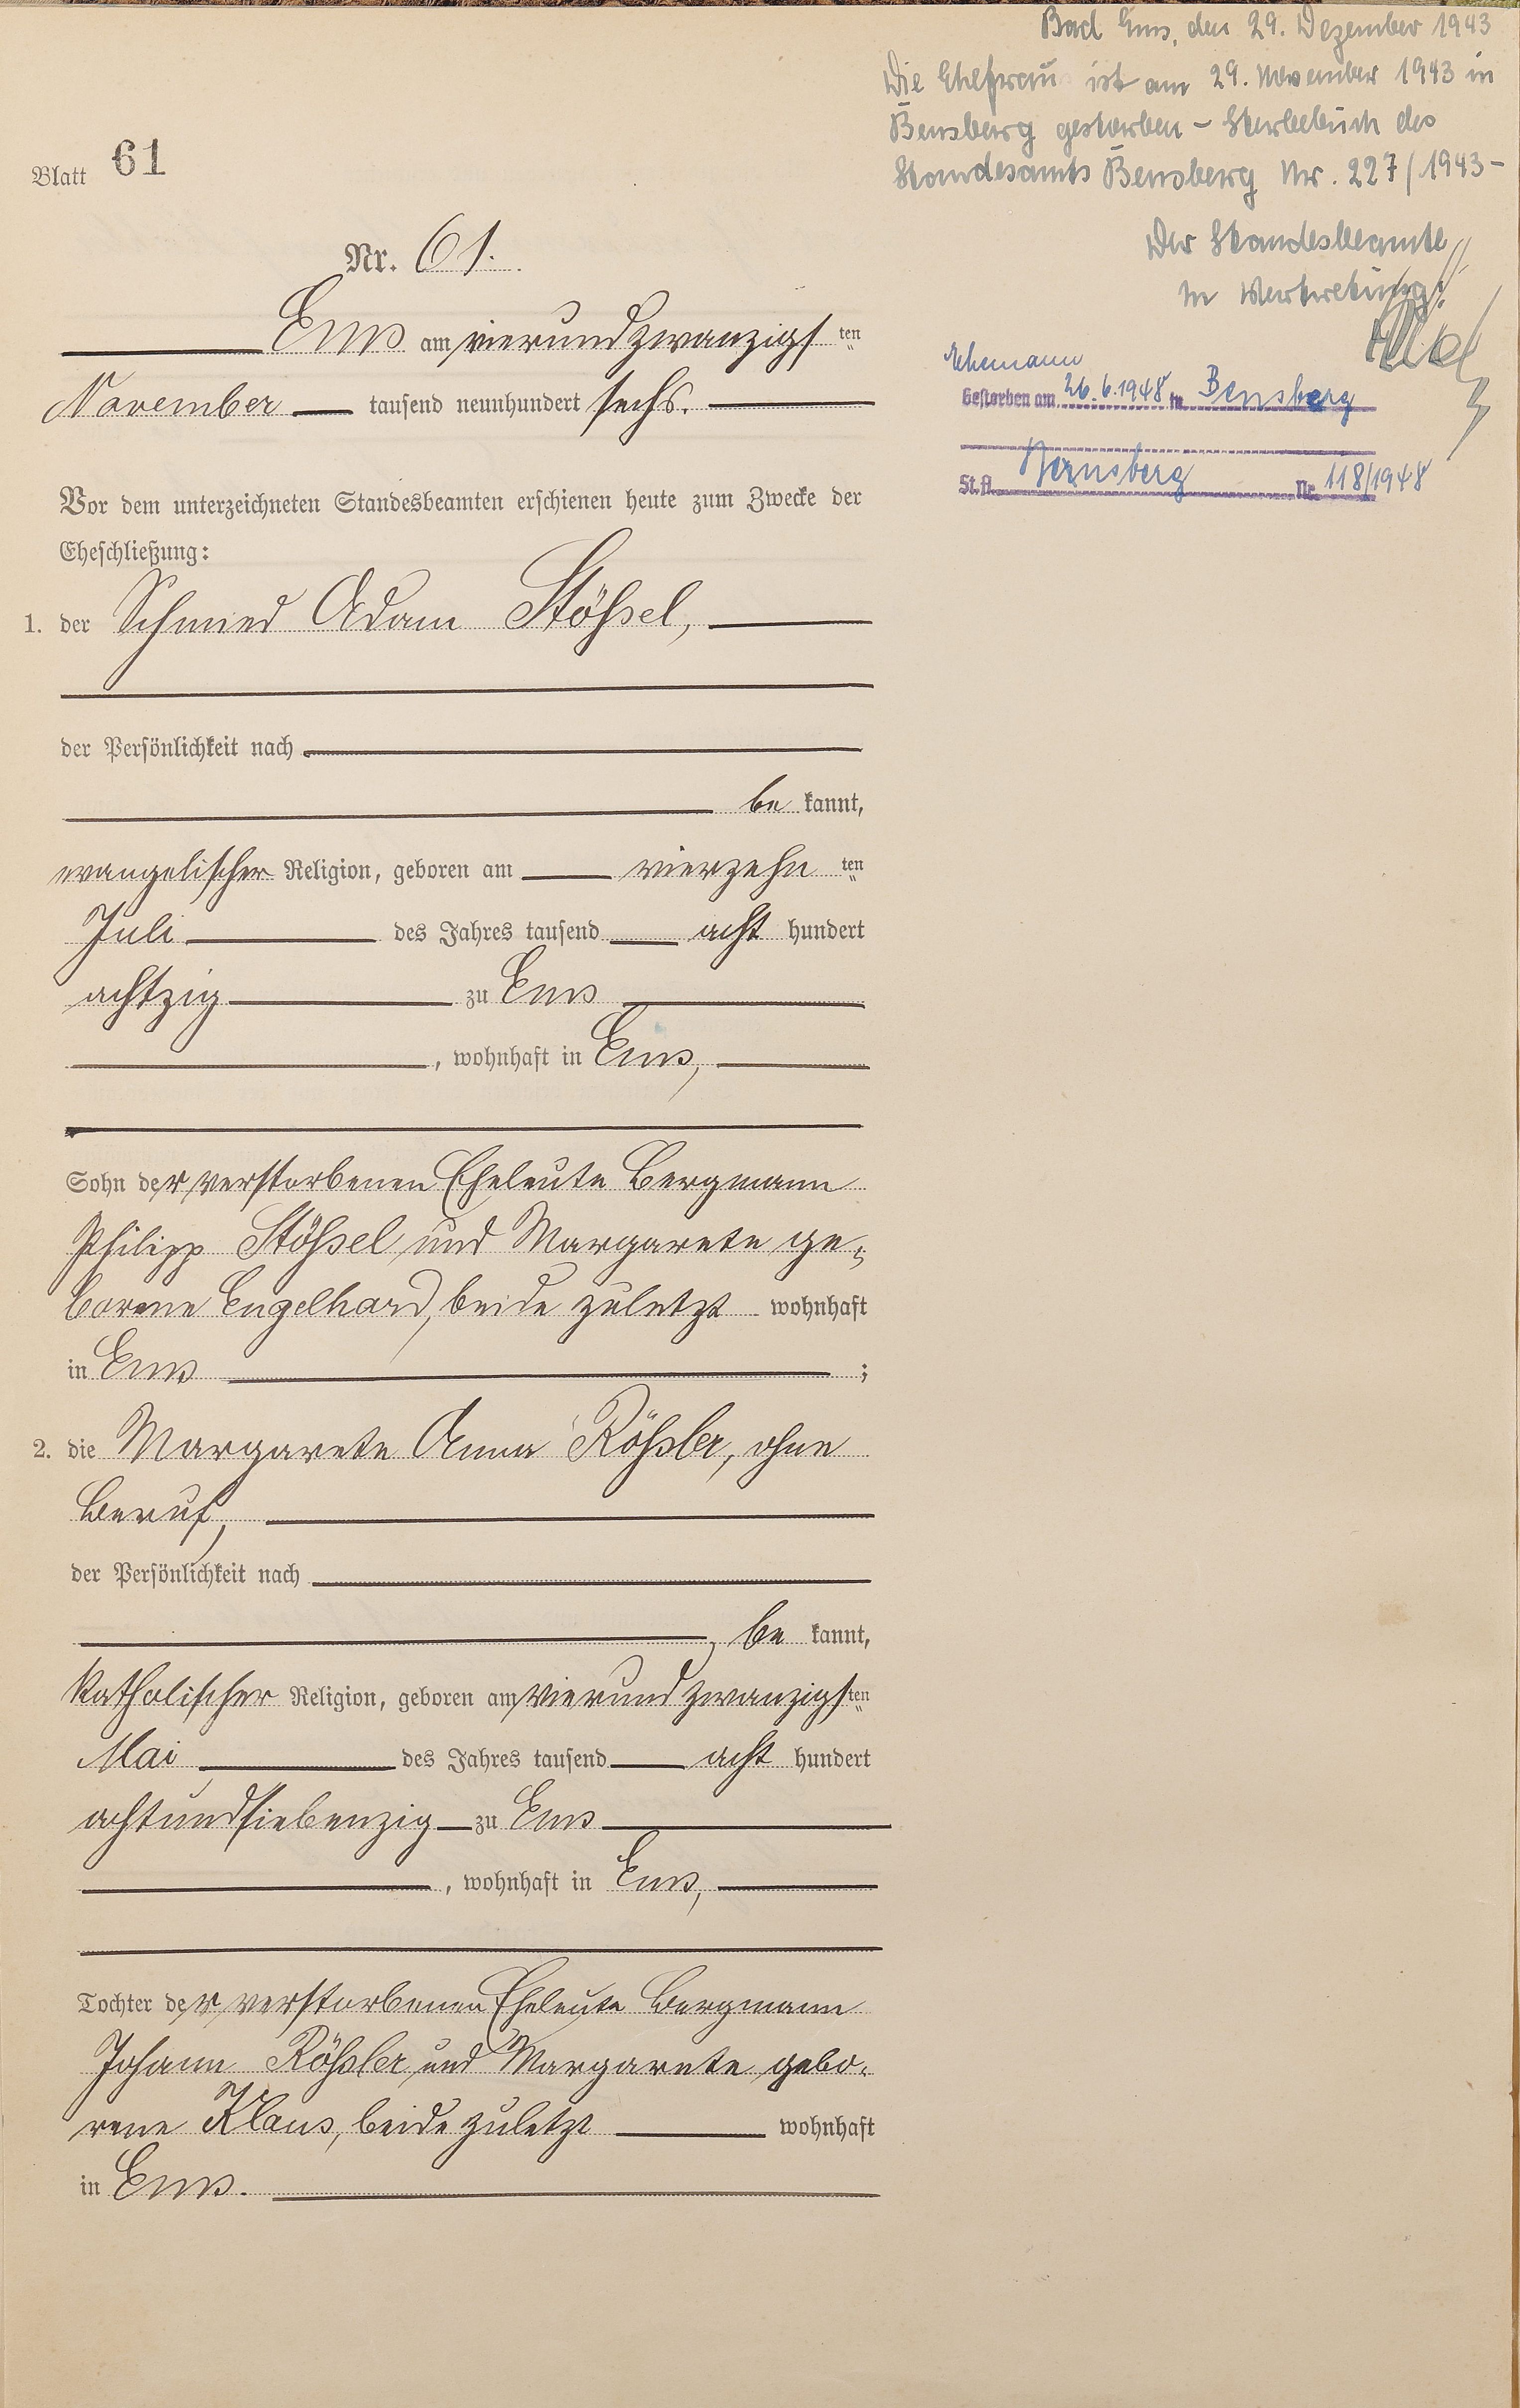 Bad Ems, den 29. Dezember 1943
Die Ehefrau ist am 29. November 1943 in
Bensberg gestorben - Sterbebuch des
Standesamts Bensberg Nr. 227/1943-
Der Standesbeamte
In Vertretung:
Ehemann
Gestorben am 26.6.1948 in Bensberg
St.A. Bensberg Nr. 118/1948
Blatt 61
Nr. 61.
Ems am vierundzwanzigsten
November tausend neunhundert sechs.
Vor dem unterzeichneten Standesbeamten erschienen heute zum Zwecke der
Eheschließung:
1. der Schmied Adam Stößel,
der Persönlichkeit nach
be kannt,
evangelischer Religion, geboren am vierzehn ten
Juli des Jahres tausend acht hundert
achtzig zu Ems
, wohnhaft in Ems,
Sohn der verstorbenen Eheleute Bergmann
Philipp Stößel und Margarete ge-
borene Engelhard, beide zuletzt wohnhaft
in Ems ;
2. die Margarete Anna Rößler, ohne
Beruf,
der Persönlichkeit nach
be kannt,
katholischer Religion, geboren am vierundzwanzigsten
Mai des Jahres tausend acht hundert
achtundsiebenzig zu Ems
, wohnhaft in Ems,
Tochter der verstorbenen Eheleute Bergmann
Johann Rößler und Margarete gebo-
rene Klaus, beide zuletzt wohnhaft
in Ems.